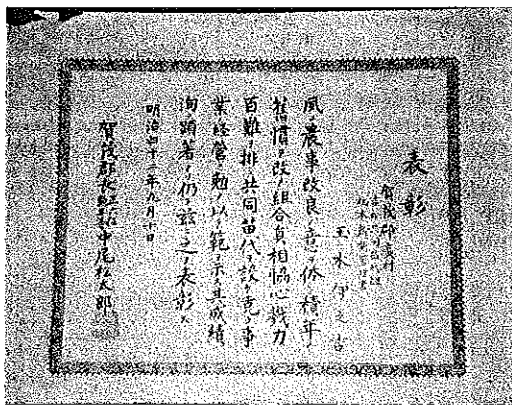 表彰
賀茂郡
玉木伊之吉
風ニ農事改良ニ意ヲ倸積年ノ
舊慣ヲ改メ組合員相協心戮力
百難ヲ排共同苗代ヲ設ケ克ク事
業経営ニ勉メ以テ範ヲ示ス其成績
洵顕著ナリ仍テ茲ニ之ヲ表彰ス
明治四十 年九月十日
賀茂郡長 中尾松太郎